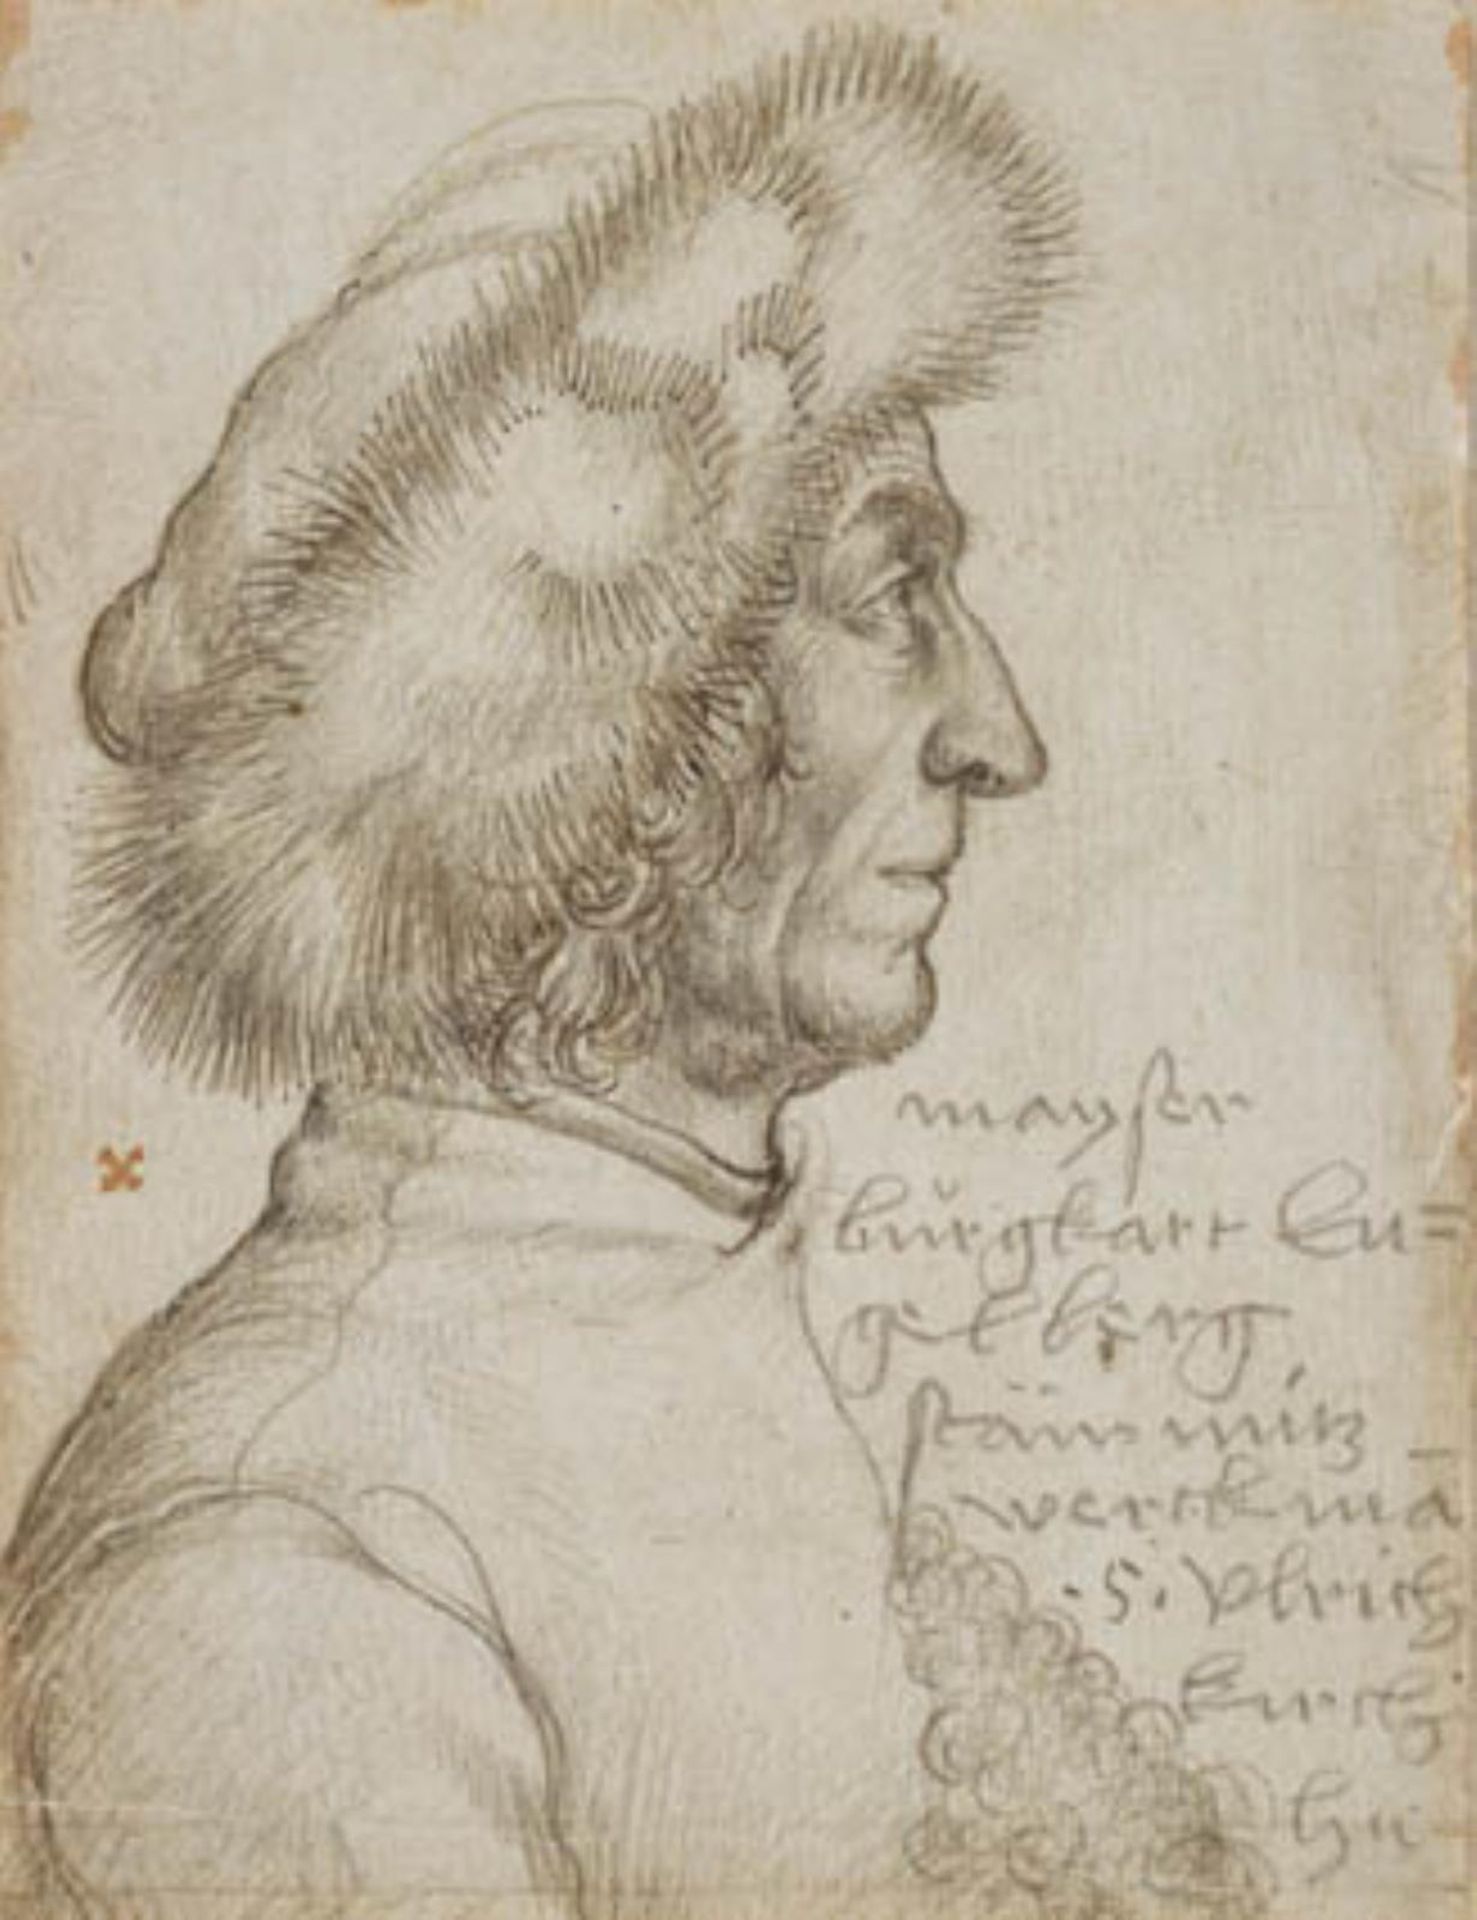 mayster
bůrgkart En=
gelberg
stäin mitz
werckmā
.S. Vlrich
kirch
hie